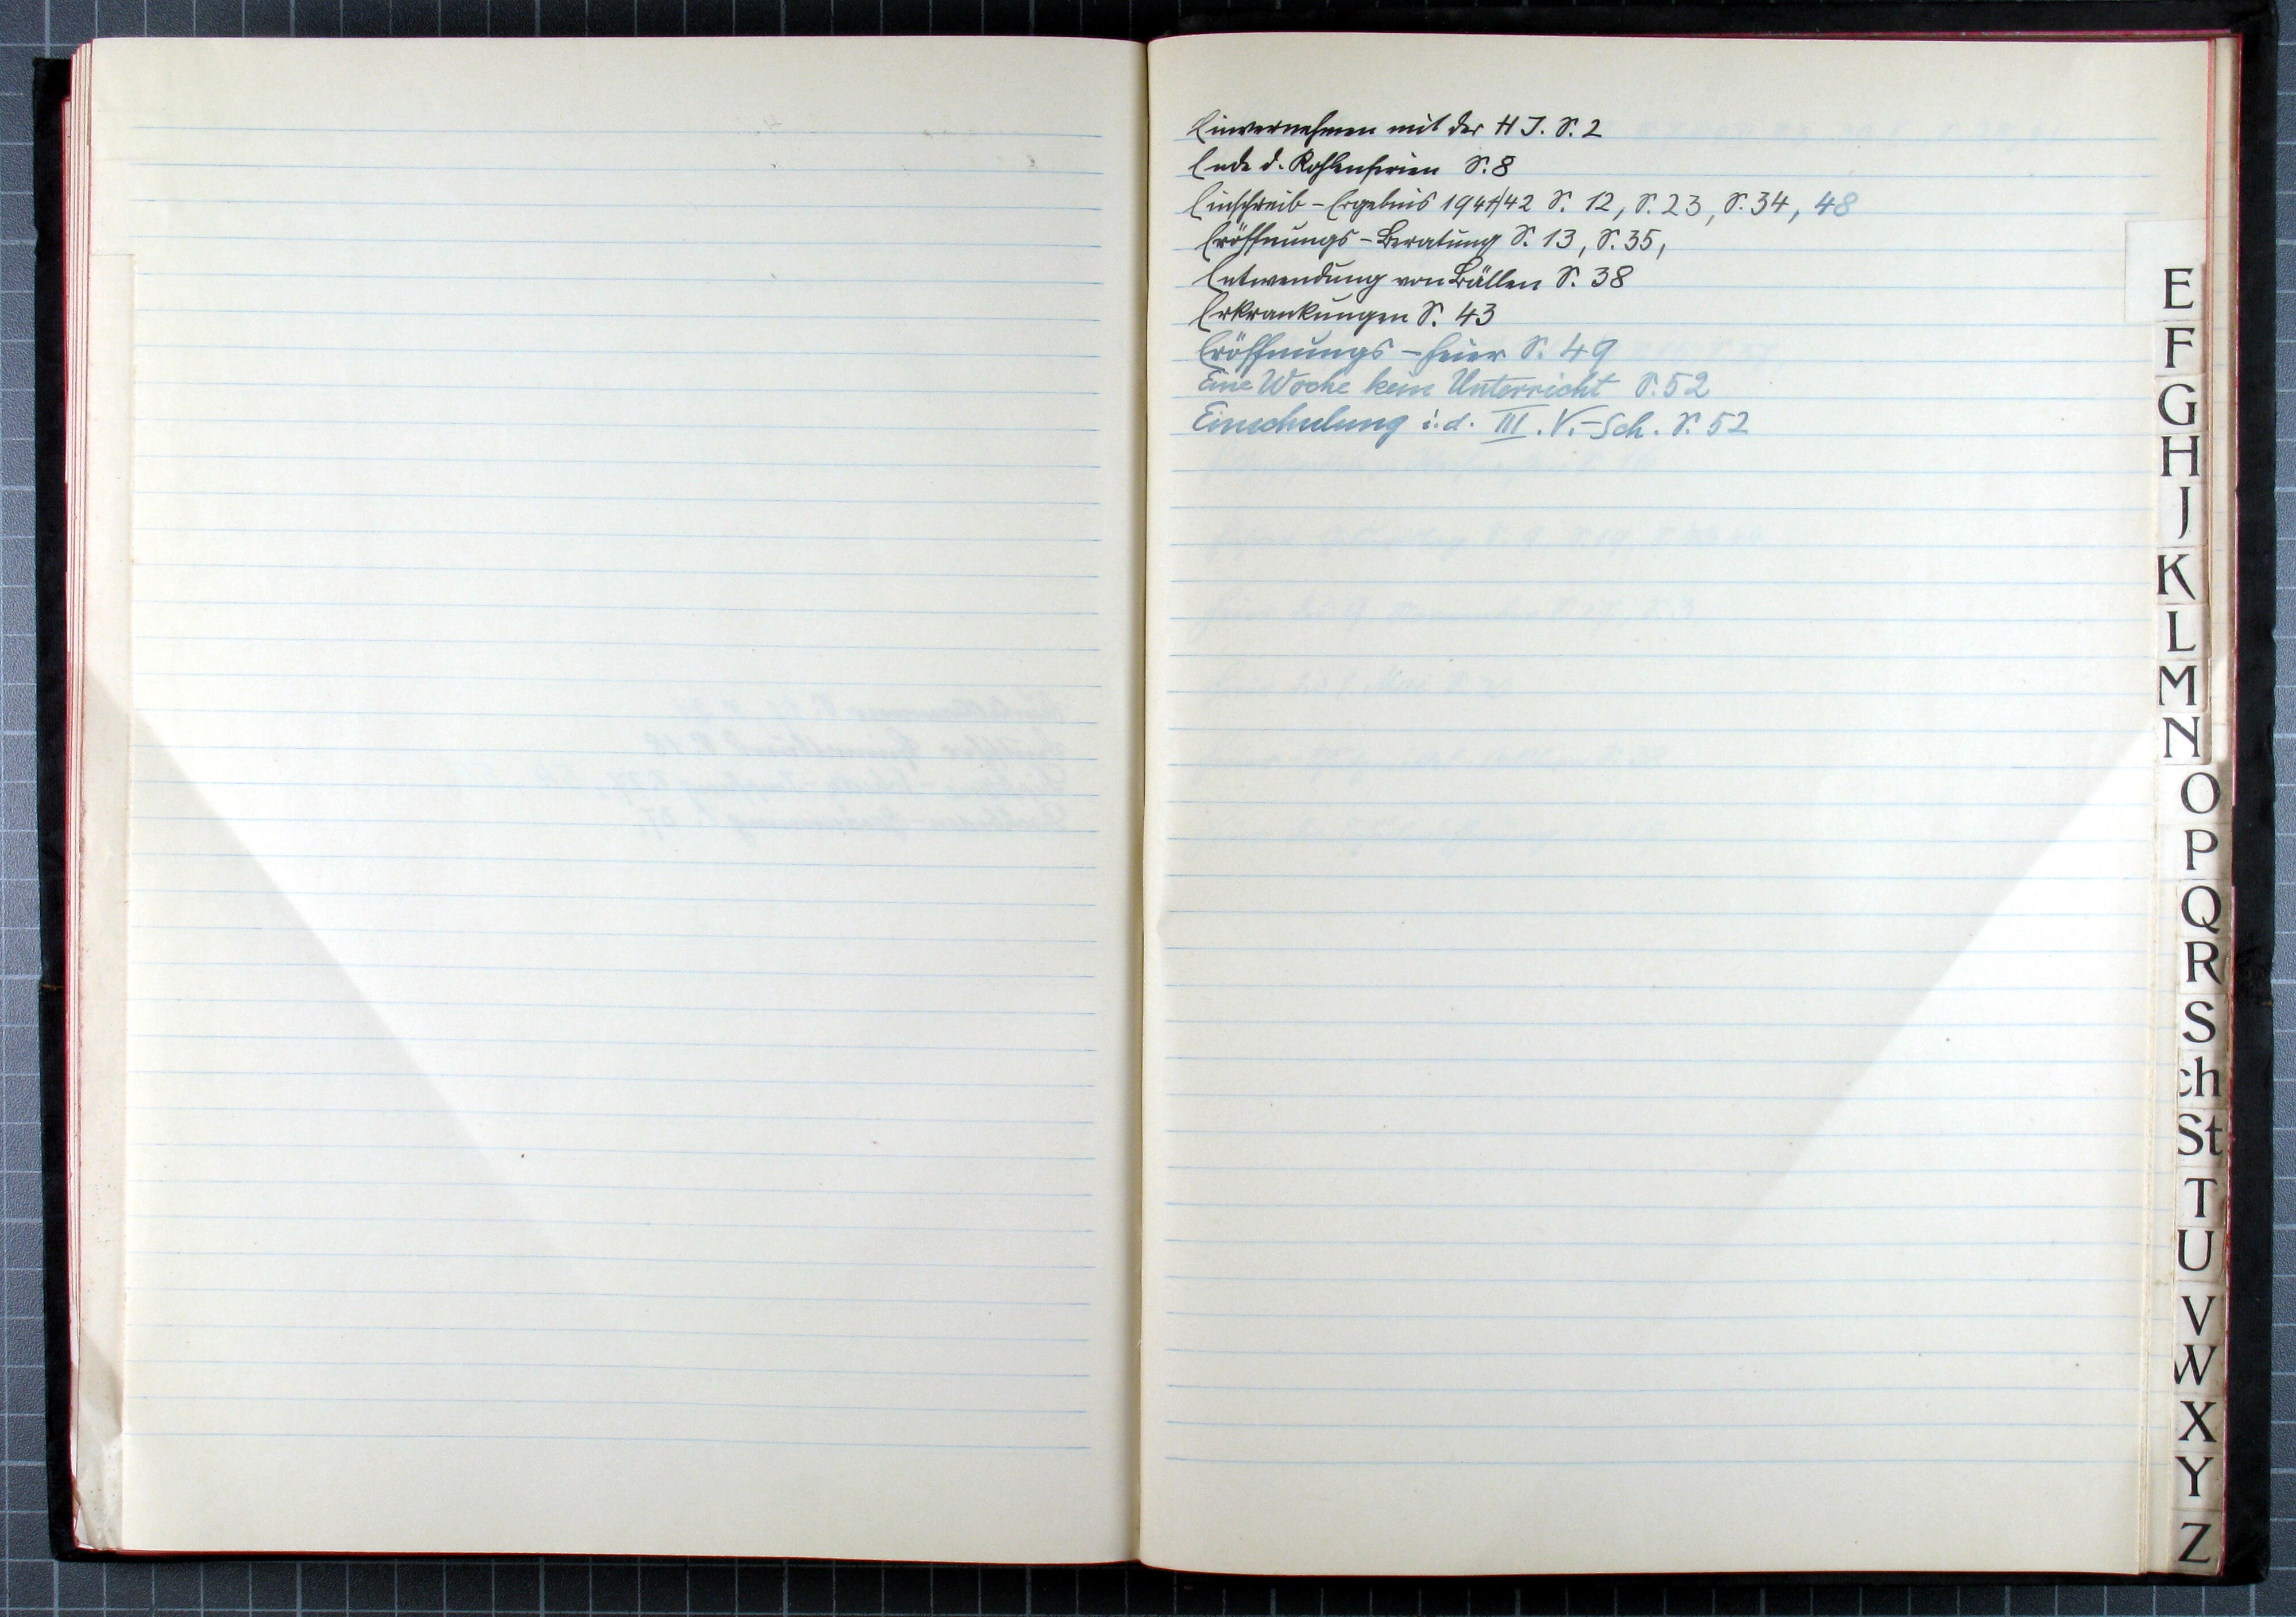 Einvernehmen mit der H J. S. 2
Ende d. Kohlenferien S. 8
Einschreib-Ergebnis 1941/42 S. 12, S. 23, S. 34, 48
Eröffnungs-Beratung S. 13, S. 35,
Entwendung von Bällen S. 38
Erkrankungen S. 43
Eröffnungs-feier S. 49
Eine Woche kein Unterricht S. 52
Einschulung i. d. III. V.-Sch. S. 52
E
F
G
H
J
K
L
M
N
O
P
Q
R
S
ch
St
T
U
V
W
X
Y
Z